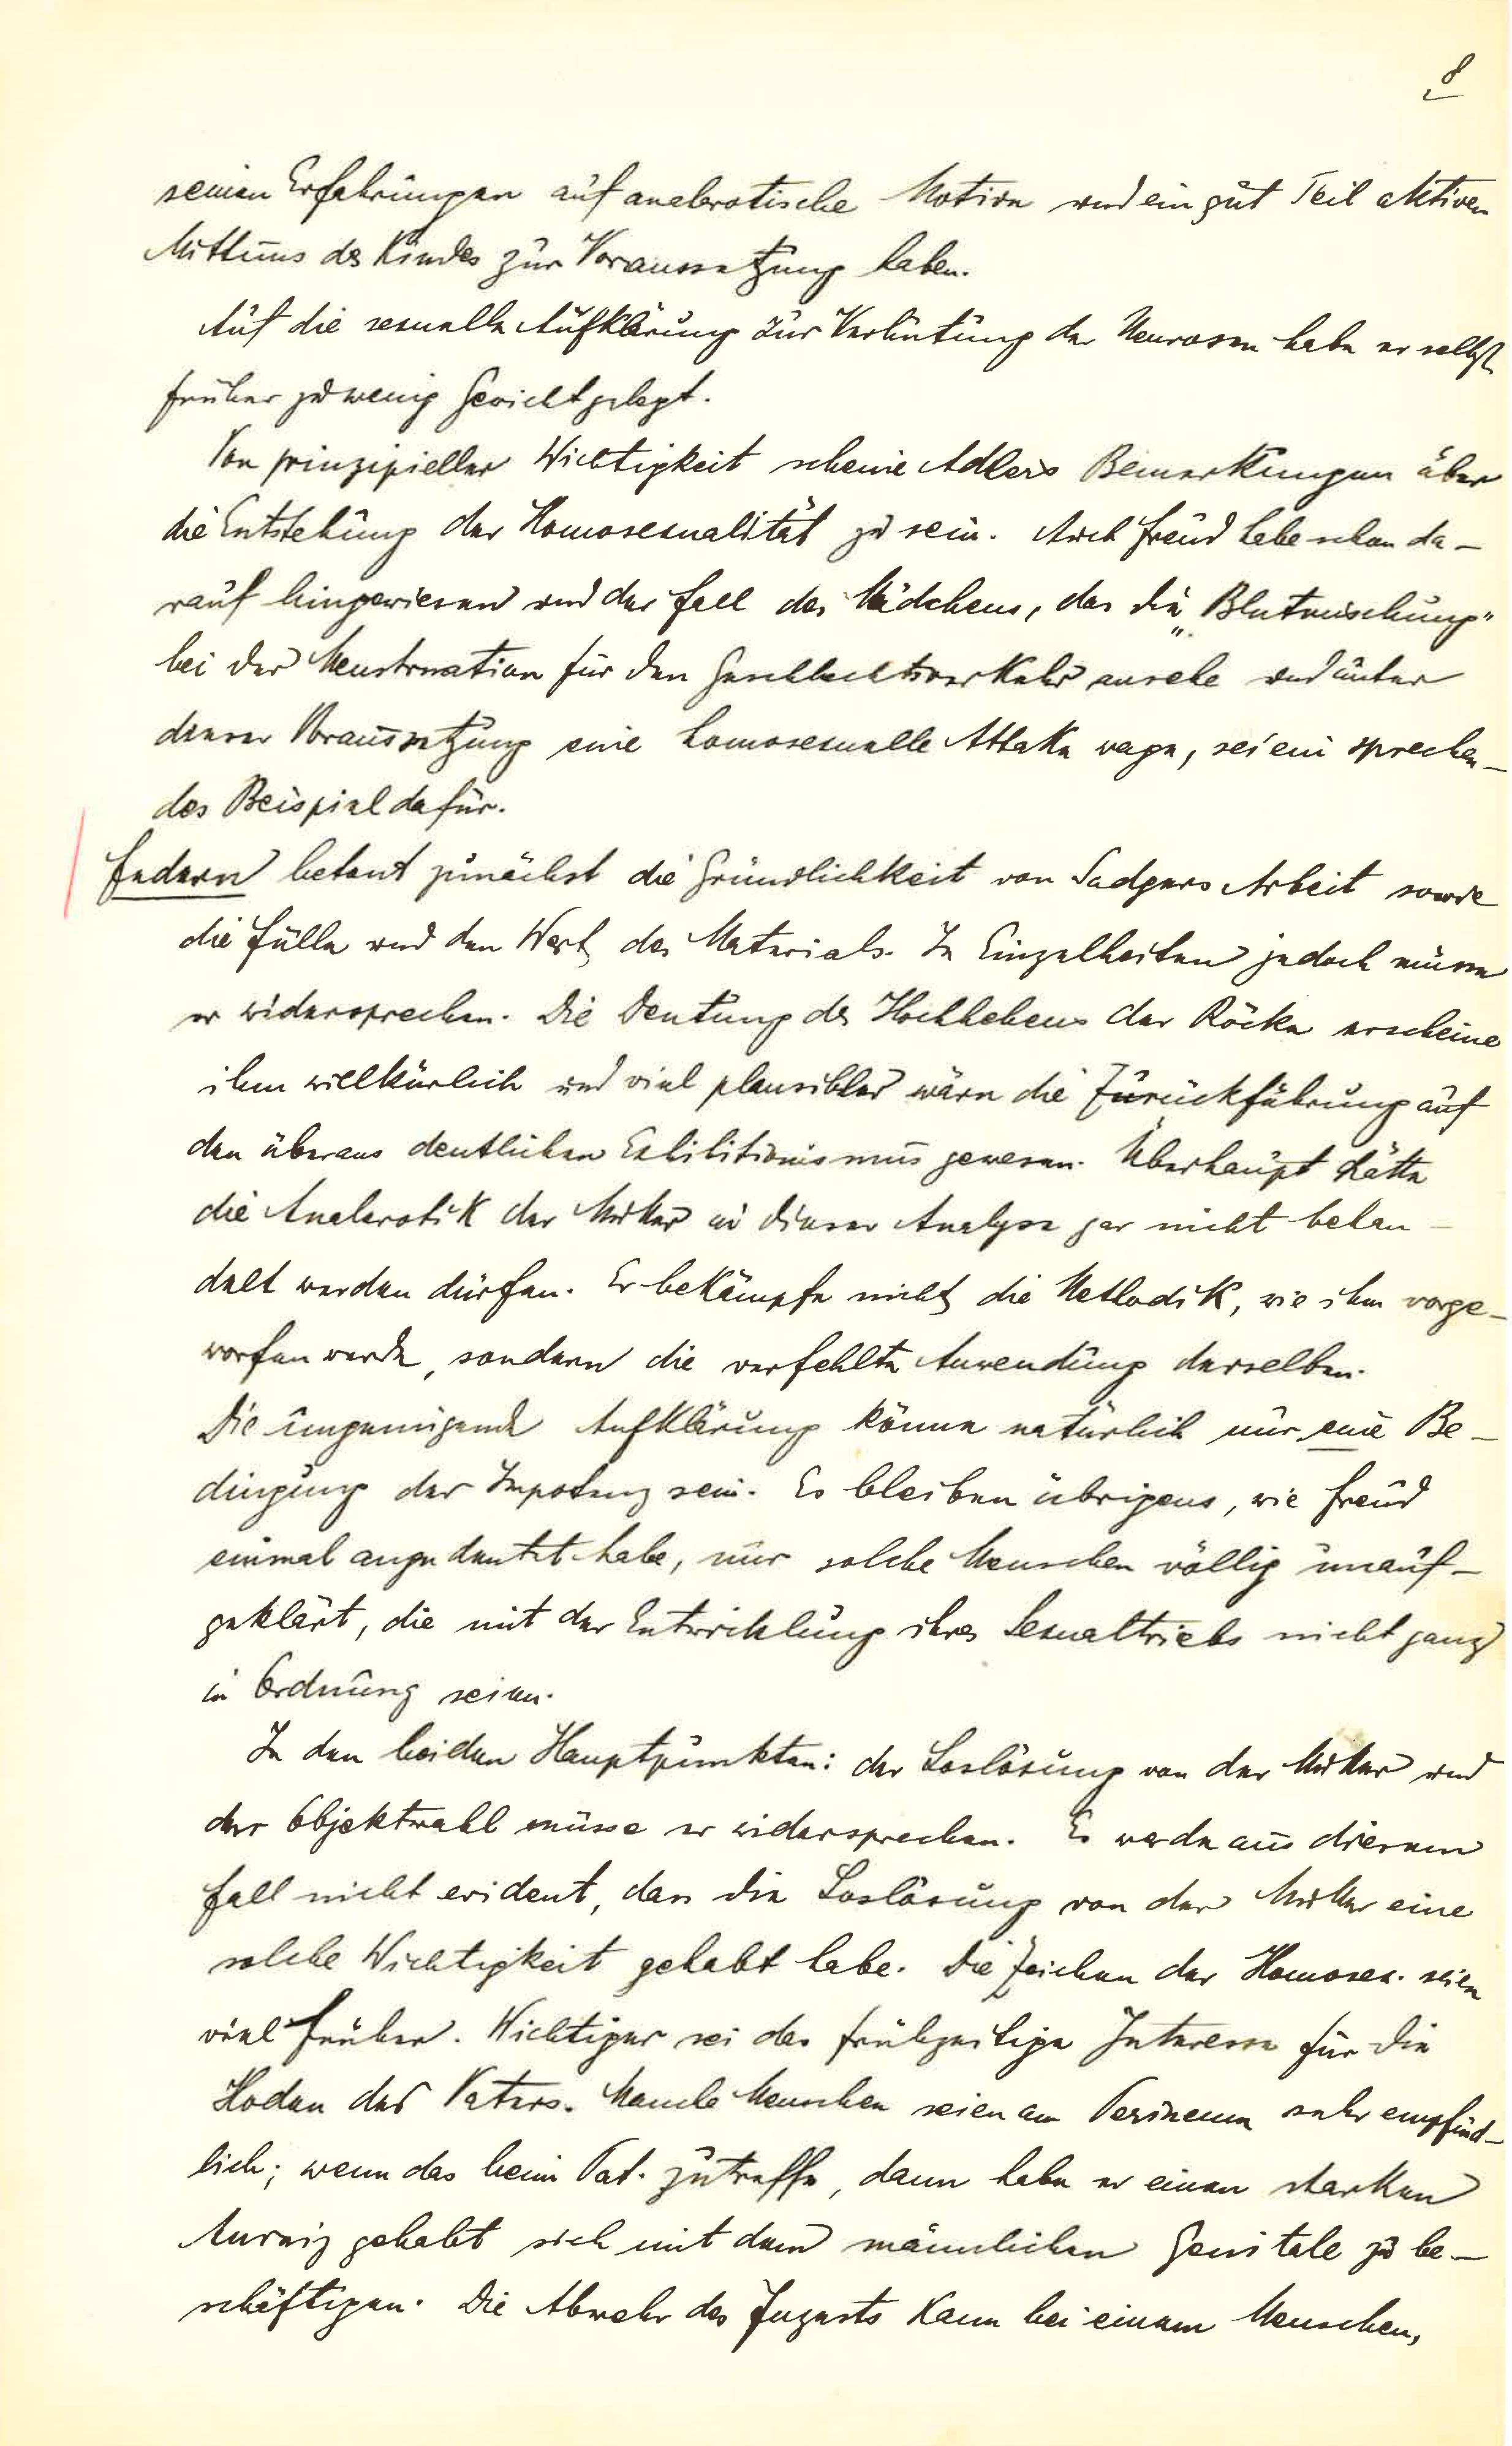 8
seinen Erfahrungen auf analerotische Motive und ein gut Teil aktiven
Mittuns des Kindes zur Voraussetzung haben.
Auf die sexuelle Aufklärung zur Verhütung der Neurosen habe er selbst
früher zu wenig Gewicht gelegt.
Von prinzipieller Wichtigkeit scheine Adlers Bemerkungen über
die Entstehung der Homosexualität zu sein. Auch Freud habe schon da-
rauf hingewiesen und der Fall des Mädchens, das die „Blutmischung"
bei der Menstruation für den Geschlechtsverkehr ansehe und unter
dieser Voraussetzung eine homosexuelle Attake wage, sei ein sprechen-
des Beispiel dafür.
Federn betont zunächst die Gründlichkeit von Sadgers Arbeit sowie
die Fülle und den Wert des Materials. In Einzelheiten jedoch müsse
er widersprechen. Die Deutung des Hochhebens der Röcke erscheine
ihm willkürlich und viel plausibler wäre die Zurückführung auf
den überaus deutlichen Exhibitionismus gewesen. Überhaupt hätte
die Analerotik der Mutter in dieser Analyse gar nicht behan-
delt werden dürfen. Er bekämpfe nicht die Methodik, wie ihm vorge-
worfen werde, sondern die verfehlte Anwendung derselben.
Die ungenügende Aufklärung könne natürlich nur eine Be-
dingung der Impotenz sein. Es bleiben übrigens, wie Freud
einmal angedeutet habe, nur solche Menschen völlig unauf-
geklärt, die mit der Entwicklung ihres Sexualtriebs nicht ganz
in Ordnung seien.
In den beiden Hauptpunkten: der Loslösung von der Mutter und
der Objektwahl müsse er widersprechen. Es werde aus diesem
Fall nicht evident, dass die Loslösung von der Mutter eine
solche Wichtigkeit gehabt habe. Die Zeichen der Homosex. seien
viel früher. Wichtiger sei das frühzeitige Interesse für die
Hoden des Vaters. Manche Menschen seien am Perineum sehr empfind-
lich; wenn das beim Pat. zutreffe, dann habe er einen starken
Anreiz gehabt sich mit dem männlichen Genitale zu be-
schäftigen. Die Abwehr des Inzests kann bei einem Menschen,